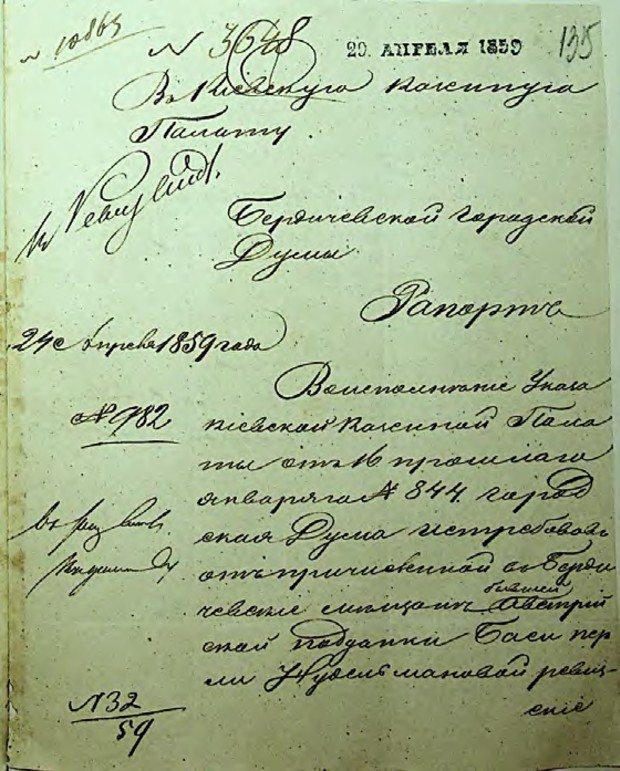 № 10865
№ 3648 20. АПРЕЛЯ 1859 135
Въ Кіевскую Казенную
Палату
Бердичевской Городской
Думы
Рапортъ
24 е Апреля 1859 года
№ 982
Воисполненіе Указа
Кіевской Казенной Пала
ты отъ 16 прошлаго
января за № 844. город
ская Дума истребовавъ
отъ причисленной въ Берди
чевскіе мещане бывшей Австрій
ской подданки Баси Пер
ли Нудельмановой ревиз-
скіе
№ 32
59